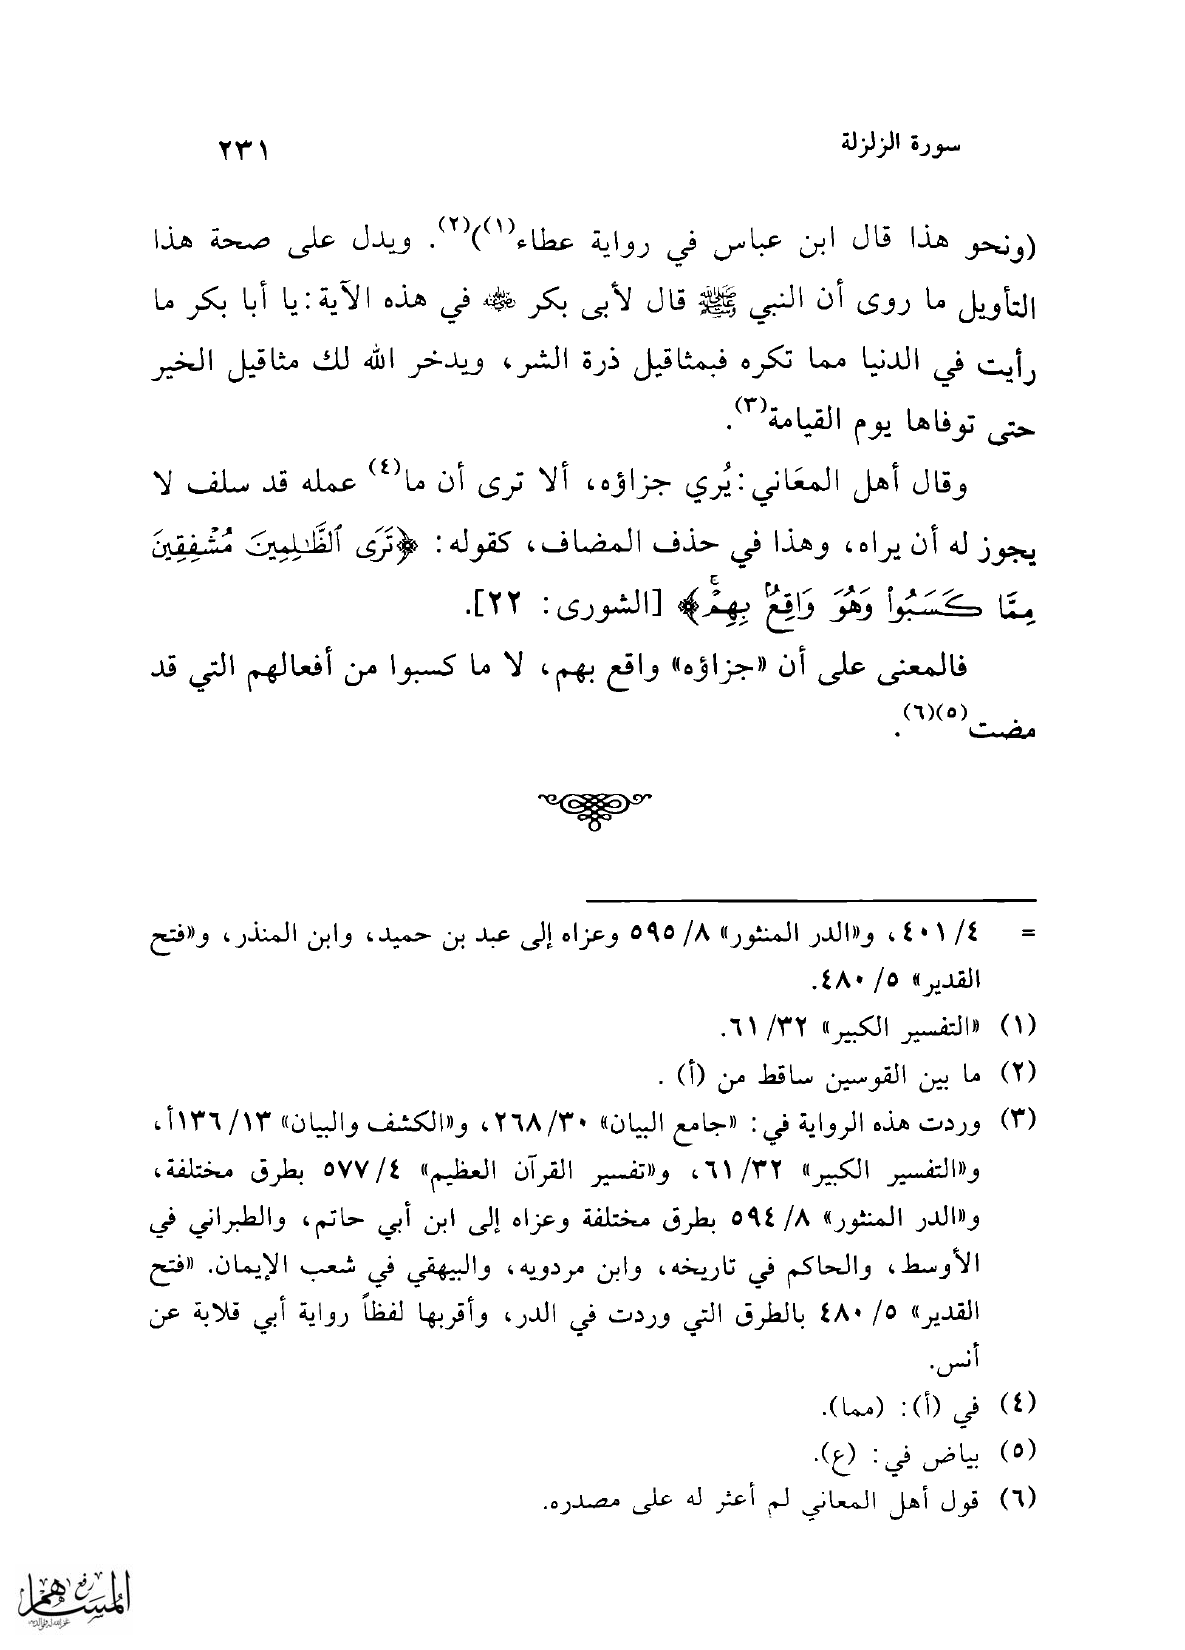 سورة الزلزلة
٢٣١
(ونحو هذا قال ابن عباس في رواية عطاء(١))(٢). ويدل على صحة هذا
التأويل ما روى أن النبي ﷺ قال لأبى بكر رضي الله عنه في هذه الآية: يا أبا بكر ما
رأيت في الدنيا مما تكره فبمثاقيل ذرة الشر، ويدخر الله لك مثاقيل الخير
حتى توفاها يوم القيامة(٣).
وقال أهل المعَاني: يُري جزاؤه، ألا ترى أن ما(٤) عمله قد سلف لا
يجوز له أن يراه، وهذا في حذف المضاف، كقوله: ﴿تَرَى ٱلظَّٰلِمِينَ مُشْفِقِينَ
مِمَّا كَسَبُواْ وَهُوَ وَاقِعٌۢ بِهِمْۗ﴾ [الشورى: ٢٢].
فالمعنى على أن «جزاؤه» واقع بهم، لا ما كسبوا من أفعالهم التي قد
مضت(٥)(٦).
= ٤/ ٤٠١، و«الدر المنثور» ٨/ ٥٩٥ وعزاه إلى عبد بن حميد، وابن المنذر، و«فتح
القدير» ٥/ ٤٨٠.
(١) «التفسير الكبير» ٣٢/ ٦١.
(٢) ما بين القوسين ساقط من (أ) .
(٣) وردت هذه الرواية في: «جامع البيان» ٣٠/ ٢٦٨، و«الكشف والبيان» ١٣/ ١٣٦أ،
و«التفسير الكبير» ٣٢/ ٦١، و«تفسير القرآن العظيم» ٤/ ٥٧٧ بطرق مختلفة،
و«الدر المنثور» ٨/ ٥٩٤ بطرق مختلفة وعزاه إلى ابن أبي حاتم، والطبراني في
الأوسط، والحاكم في تاريخه، وابن مردويه، والبيهقي في شعب الإيمان. «فتح
القدير» ٥/ ٤٨٠ بالطرق التي وردت في الدر، وأقربها لفظاً رواية أبي قلابة عن
أنس.
(٤) في (أ): (مما).
(٥) بياض في: (ع).
(٦) قول أهل المعاني لم أعثر له على مصدره.
رفع
المساهم